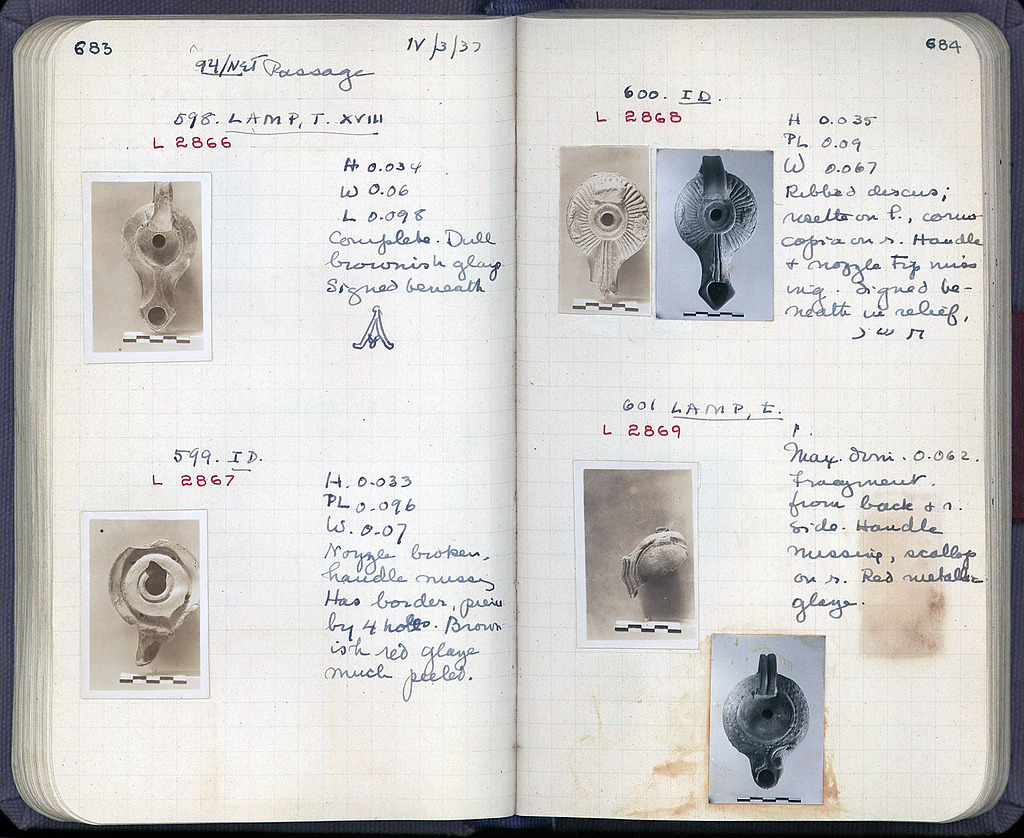 683
IV/3/37
94/NET Passage
598. LAMP, T. XVIII
L 2866
H 0.034
W 0.06
L 0.098
Complete. Dull
brownish glaze
Signed beneath
599. ID.
L 2867
H. 0.033
PL 0.096
W. 0.07
Nozzle broken,
handle missing
Has border, pierc
by 4 holes. Brown-
ish red glaze
much peeled.
684
600. ID.
L 2868
H 0.035
PL 0.09
W 0.067
Ribbed discus;
rosette on l., cornu-
copia on r. Handle
+ nozzle tip miss
ing. Signed be-
neath in relief,
601 LAMP, I.
L 2869
P.
Max. dim. 0.062.
Fragment.
from back + r.
side. Handle
missing, scallop
on r. Red metallic
glaze.